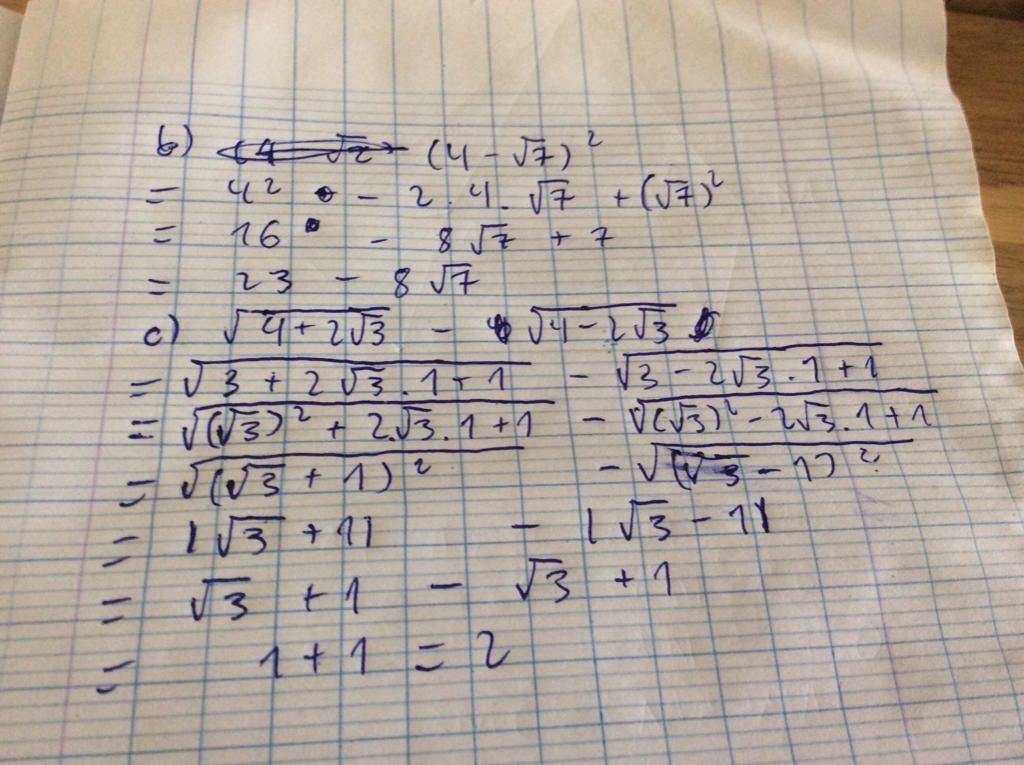 b) (4 - √7)²
= 4² - 2 . 4 . √7 + (√7)²
= 16 - 8√7 + 7
= 23 - 8√7
c) √(4 + 2√3) - √(4 - 2√3)
= √(3 + 2√3 . 1 + 1) - √(3 - 2√3 . 1 + 1)
= √((√3)² + 2.√3 . 1 + 1) - √((√3)² - 2√3 . 1 + 1)
= √((√3 + 1)²) - √((√3 - 1)²)
= |√3 + 1| - |√3 - 1|
= √3 + 1 - √3 + 1
= 1 + 1 = 2